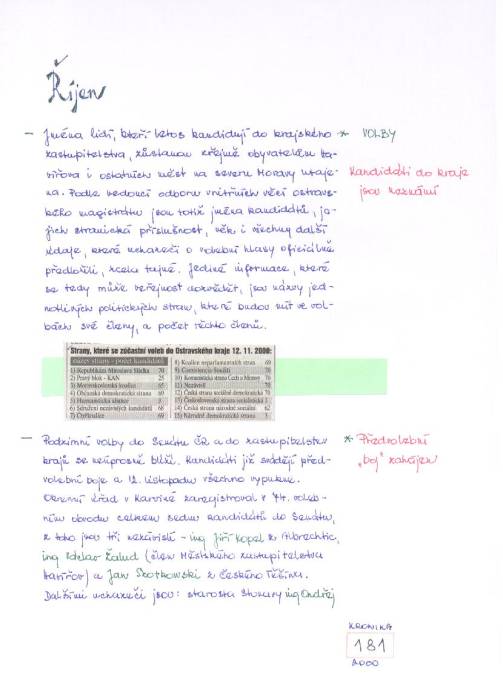 Říjen
– Jména lidí, kteří letos kandidují do krajského
zastupitelstva, zůstanou zřejmě obyvatelům Ha-
vířova i ostatních měst na severu Moravy utaje-
na. Podle vedoucí odboru vnitřních věcí ostrav-
ského magistrátu jsou totiž jména kandidátů, je-
jich stranická příslušnost, věk i všechny další
údaje, které uchazeči o volební hlasy oficiálně
předložili, zcela tajné. Jediné informace, které
se tedy může veřejnost dozvědět, jsou názvy jed-
notlivých politických stran, které budou mít ve vol-
bách své členy, a počet těchto členů.
* VOLBY
Kandidáti do kraje
jsou neznámí
Strany, které se zúčastní voleb do Ostravského kraje 12. 11. 2000:
název strany - počet kandidátů
1) Republikáni Miroslava Sládka 70
2) Pravý blok - KAN 25
3) Moravskoslezská koalice 65
4) Občanská demokratická strana 69
5) Humanistická aliance 5
6) Sdružení nezávislých kandidátů 68
7) Čtyřkoalice 69
8) Koalice neparlamentních stran 69
9) Coexistencia-Soužití 70
10) Komunistická strana Čech a Moravy 70
11) Nezávislí 70
12) Česká strana sociálně demokratická 70
13) Československá strana socialistická
14) Česká strana národně sociální 62
15) Národně demokratická strana
– Podzimní volby do Senátu ČR a do zastupitelstev
krajů se neúprosně blíží. Kandidáti již svádějí před-
volební boje a 12. listopadu všechno vypukne.
Okresní úřad v Karviné zaregistroval v 74. voleb-
ním obvodu celkem sedm kandidátů do Senátu,
z toho jsou tři nezávislí – ing Jiří Kopel z Albrechtic,
ing Zdeslav Žalud (člen Městského zastupitelstva
Havířov) a Jan Szotkowski z Českého Těšína.
Dalšími uchazeči jsou: starosta Stonavy ing Ondřej
* Předvolební
„boj" zahájen
KRONIKA
181
2000